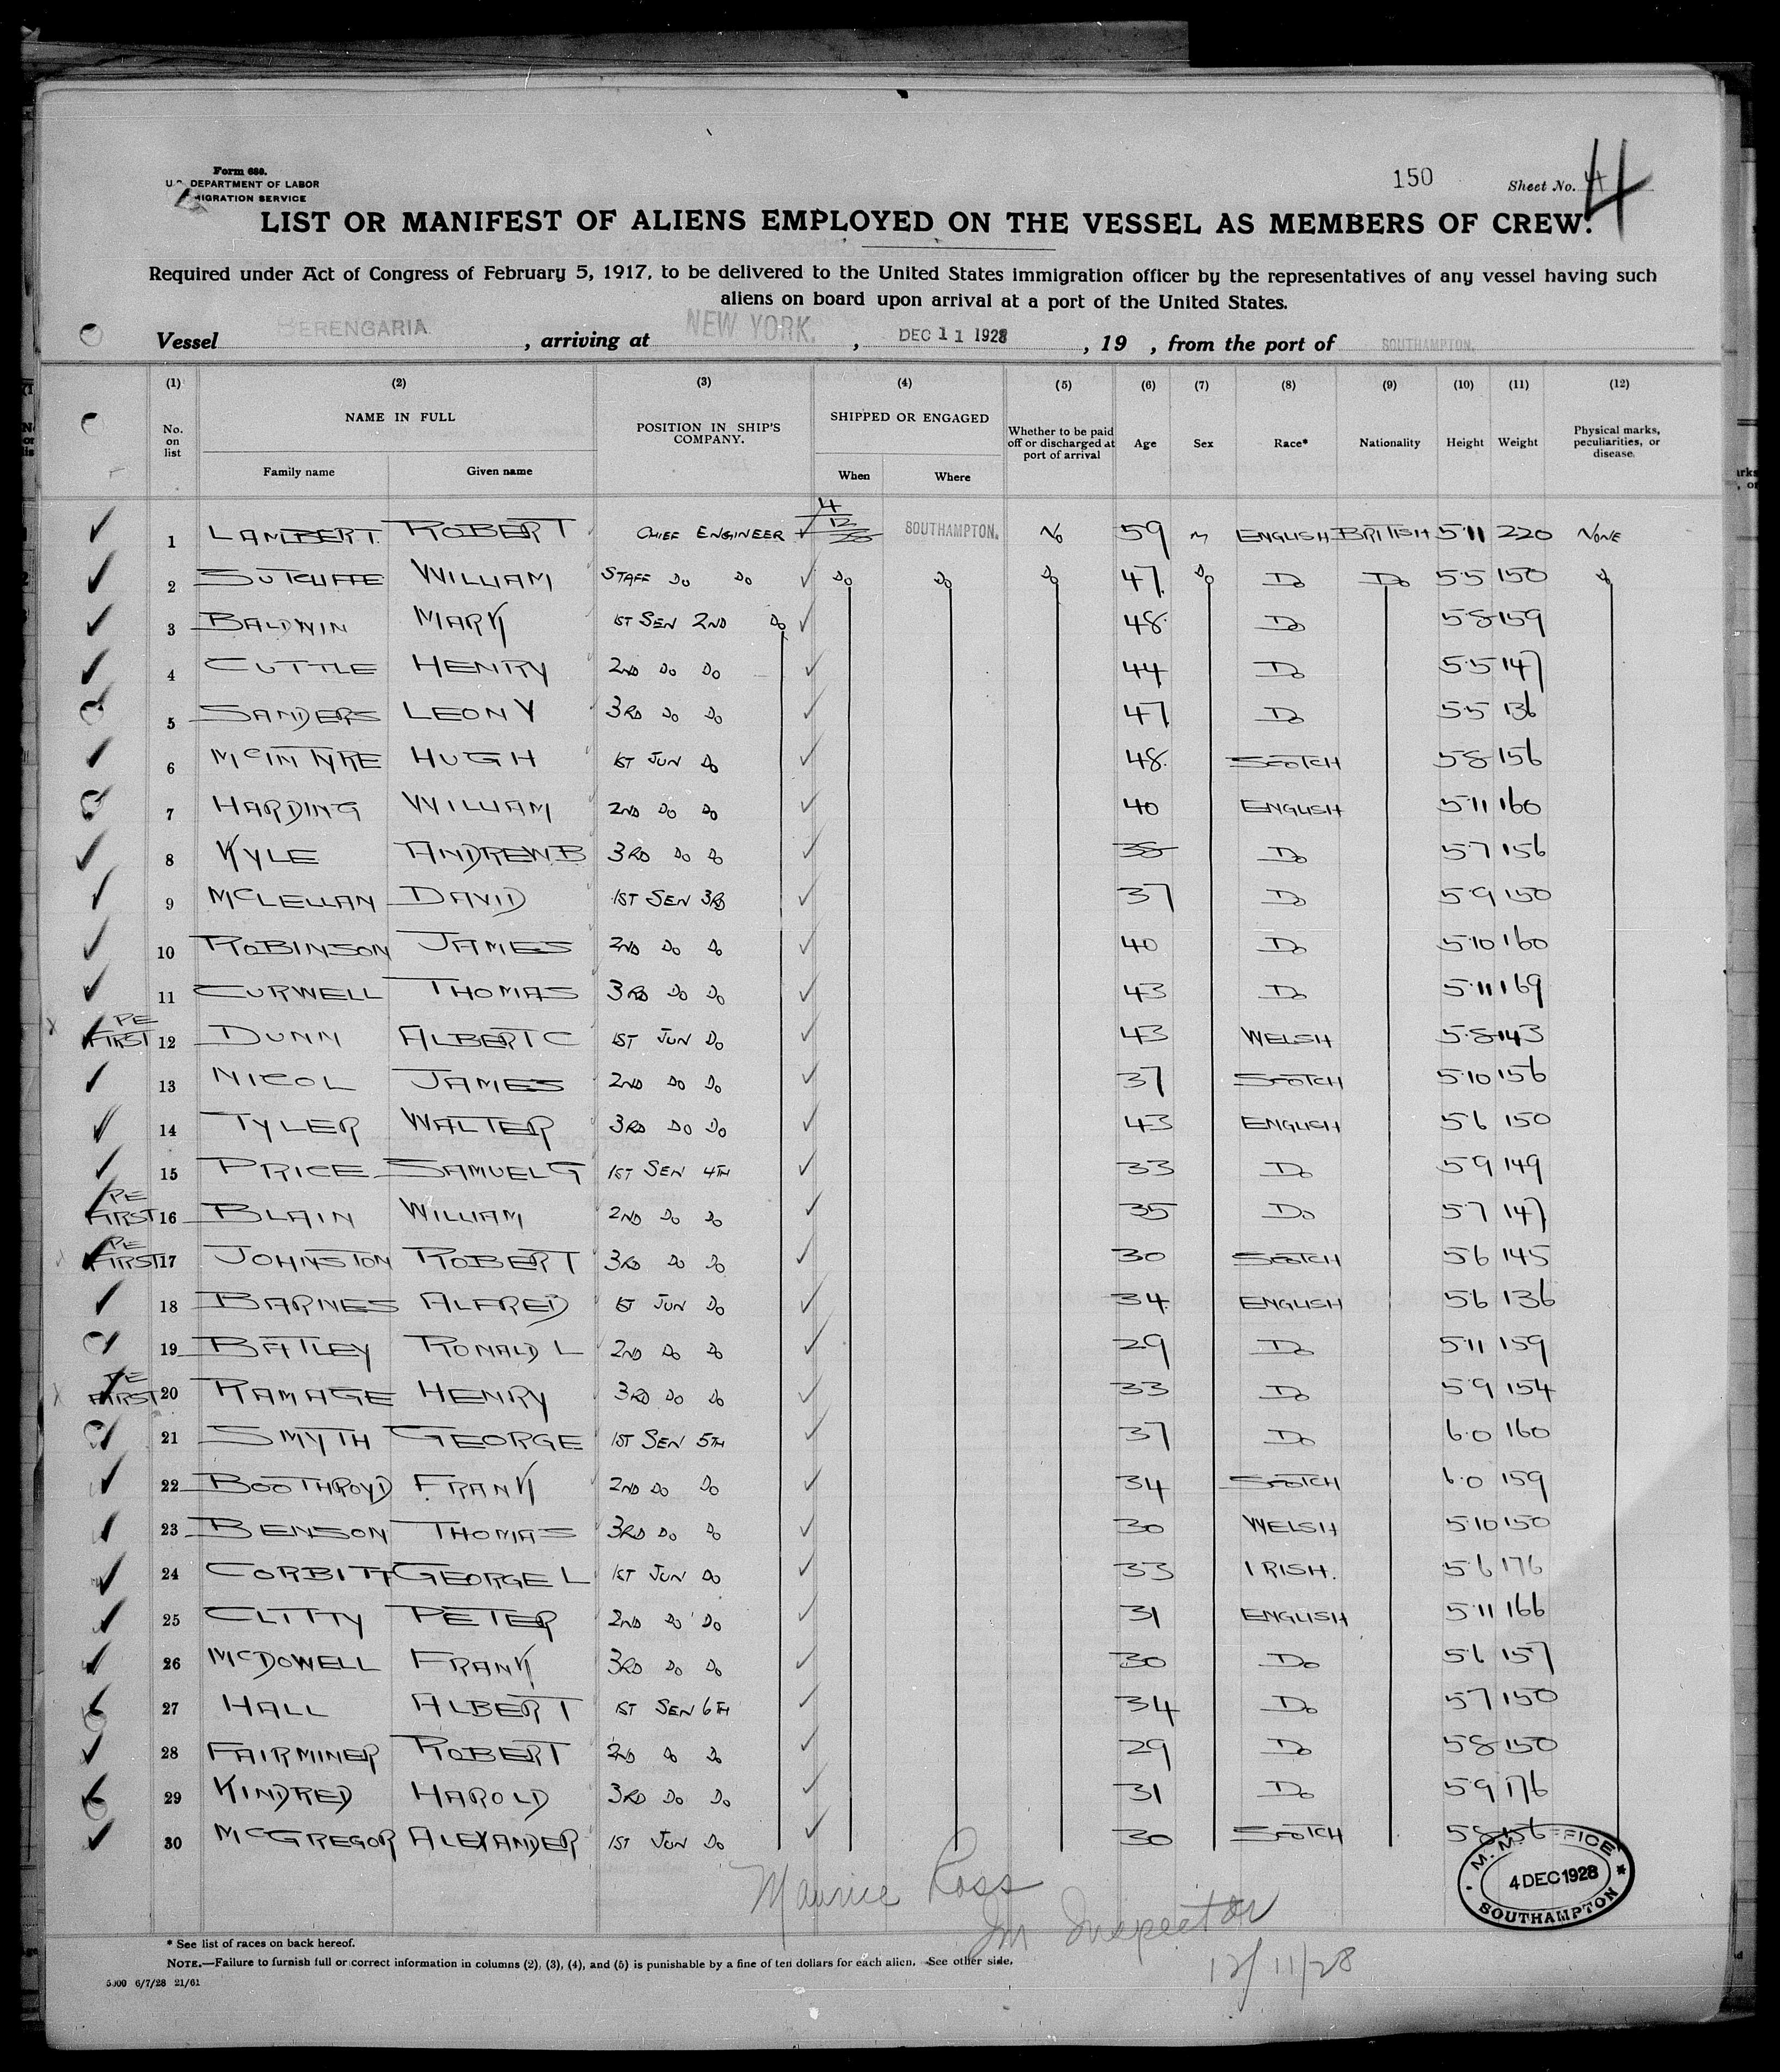 Form 680.
U.S. DEPARTMENT OF LABOR
IMMIGRATION SERVICE
150
Sheet No. 4 4
LIST OR MANIFEST OF ALIENS EMPLOYED ON THE VESSEL AS MEMBERS OF CREW.
Required under Act of Congress of February 5, 1917, to be delivered to the United States immigration officer by the representatives of any vessel having such
aliens on board upon arrival at a port of the United States.
Vessel BERENGARIA, arriving at NEW YORK., DEC 11 1928, 19 , from the port of SOUTHAMPTON.
(1) (2) (3) (4) (5) (6) (7) (8) (9) (10) (11) (12)
No. on list NAME IN FULL POSITION IN SHIP'S COMPANY. SHIPPED OR ENGAGED Whether to be paid off or discharged at port of arrival Age Sex Race* Nationality Height Weight Physical marks, peculiarities, or disease.
Family name Given name When Where
1 LAMBERT ROBERT CHIEF ENGINEER 4/12/28 SOUTHAMPTON. NO 59 M ENGLISH BRITISH 5·11 220 NONE
2 SUTCLIFFE WILLIAM STAFF DO DO DO DO DO 47 DO DO DO 5·5 150 DO
3 BALDWIN MARK 1ST SEN 2ND DO 48 DO 5·8 159
4 CUTTLE HENRY 2ND DO DO 44 DO 5·5 147
5 SANDERS LEON Y 3RD DO DO 47 DO 5·5 136
6 McINTYRE HUGH 1ST JUN DO 48 SCOTCH 5·8 156
7 HARDING WILLIAM 2ND DO DO 40 ENGLISH 5·11 160
8 KYLE ANDREW.B 3RD DO DO 38 DO 5·7 156
9 McLELLAN DAVID 1ST SEN 3RD 37 DO 5·9 150
10 ROBINSON JAMES 2ND DO DO 40 DO 5·10 160
11 CURWELL THOMAS 3RD DO DO 43 DO 5·11 169
PE FIRST 12 DUNN ALBERT C 1ST JUN DO 43 WELSH 5·8 143
13 NICOL JAMES 2ND DO DO 37 SCOTCH 5·10 156
14 TYLER WALTER 3RD DO DO 43 ENGLISH 5·6 150
15 PRICE SAMUEL G 1ST SEN 4TH 33 DO 5·9 149
PE FIRST 16 BLAIN WILLIAM 2ND DO DO 35 DO 5·7 147
PE FIRST 17 JOHNSTON ROBERT 3RD DO DO 30 SCOTCH 5·6 145
18 BARNES ALFRED 1ST JUN DO 34 ENGLISH 5·6 136
19 BATLEY RONALD L 2ND DO DO 29 DO 5·11 159
PE FIRST 20 RAMAGE HENRY 3RD DO DO 33 DO 5·9 154
21 SMYTH GEORGE 1ST SEN 5TH 37 DO 6·0 160
22 BOOTHROYD FRANK 2ND DO DO 34 SCOTCH 6·0 159
23 BENSON THOMAS 3RD DO DO 30 WELSH 5·10 150
24 CORBITT GEORGE L 1ST JUN DO 33 IRISH. 5·6 176
25 CLITTY PETER 2ND DO DO 31 ENGLISH 5·11 166
26 McDOWELL FRANK 3RD DO DO 30 DO 5·6 157
27 HALL ALBERT 1ST SEN 6TH 34 DO 5·7 150
28 FAIRMINER ROBERT 2ND DO DO 29 DO 5·8 150
29 KINDRED HAROLD 3RD DO DO 31 DO 5·9 176
30 McGREGOR ALEXANDER 1ST JUN DO 30 SCOTCH 5·8 156
M. M. OFFICE
4 DEC 1928
SOUTHAMPTON
Maurice Ross
Im Inspector
12/11/28
* See list of races on back hereof.
NOTE.—Failure to furnish full or correct information in columns (2), (3), (4), and (5) is punishable by a fine of ten dollars for each alien. See other side.
5000 6/7/28 21/61